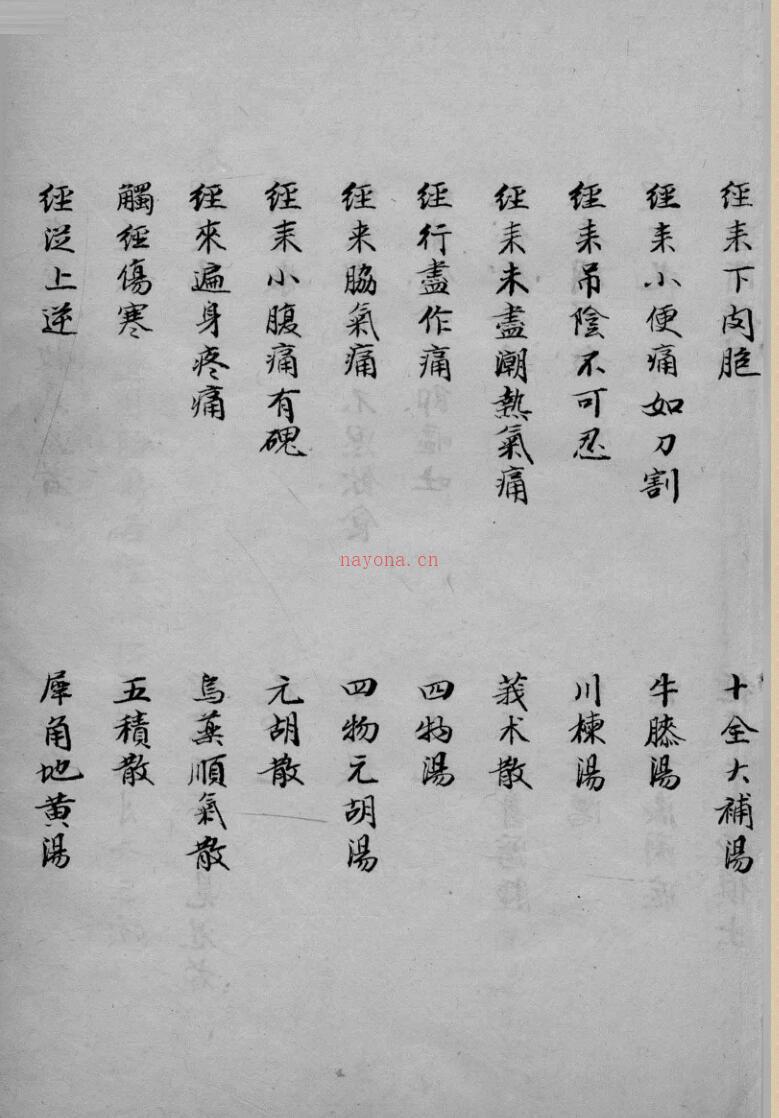 經來下肉胞 十全大補湯
經來小便痛如刀割 牛膝湯
經來吊陰不可忍 川楝湯
經來未盡潮熱氣痛 莪术散
經行盡作痛 四物湯
經来脇氣痛 四物元胡湯
經來小腹痛有磈 元胡散
經來遍身疼痛 烏藥順氣散
觸經傷寒 五積散
經從上逆 犀角地黄湯
nayona.cn